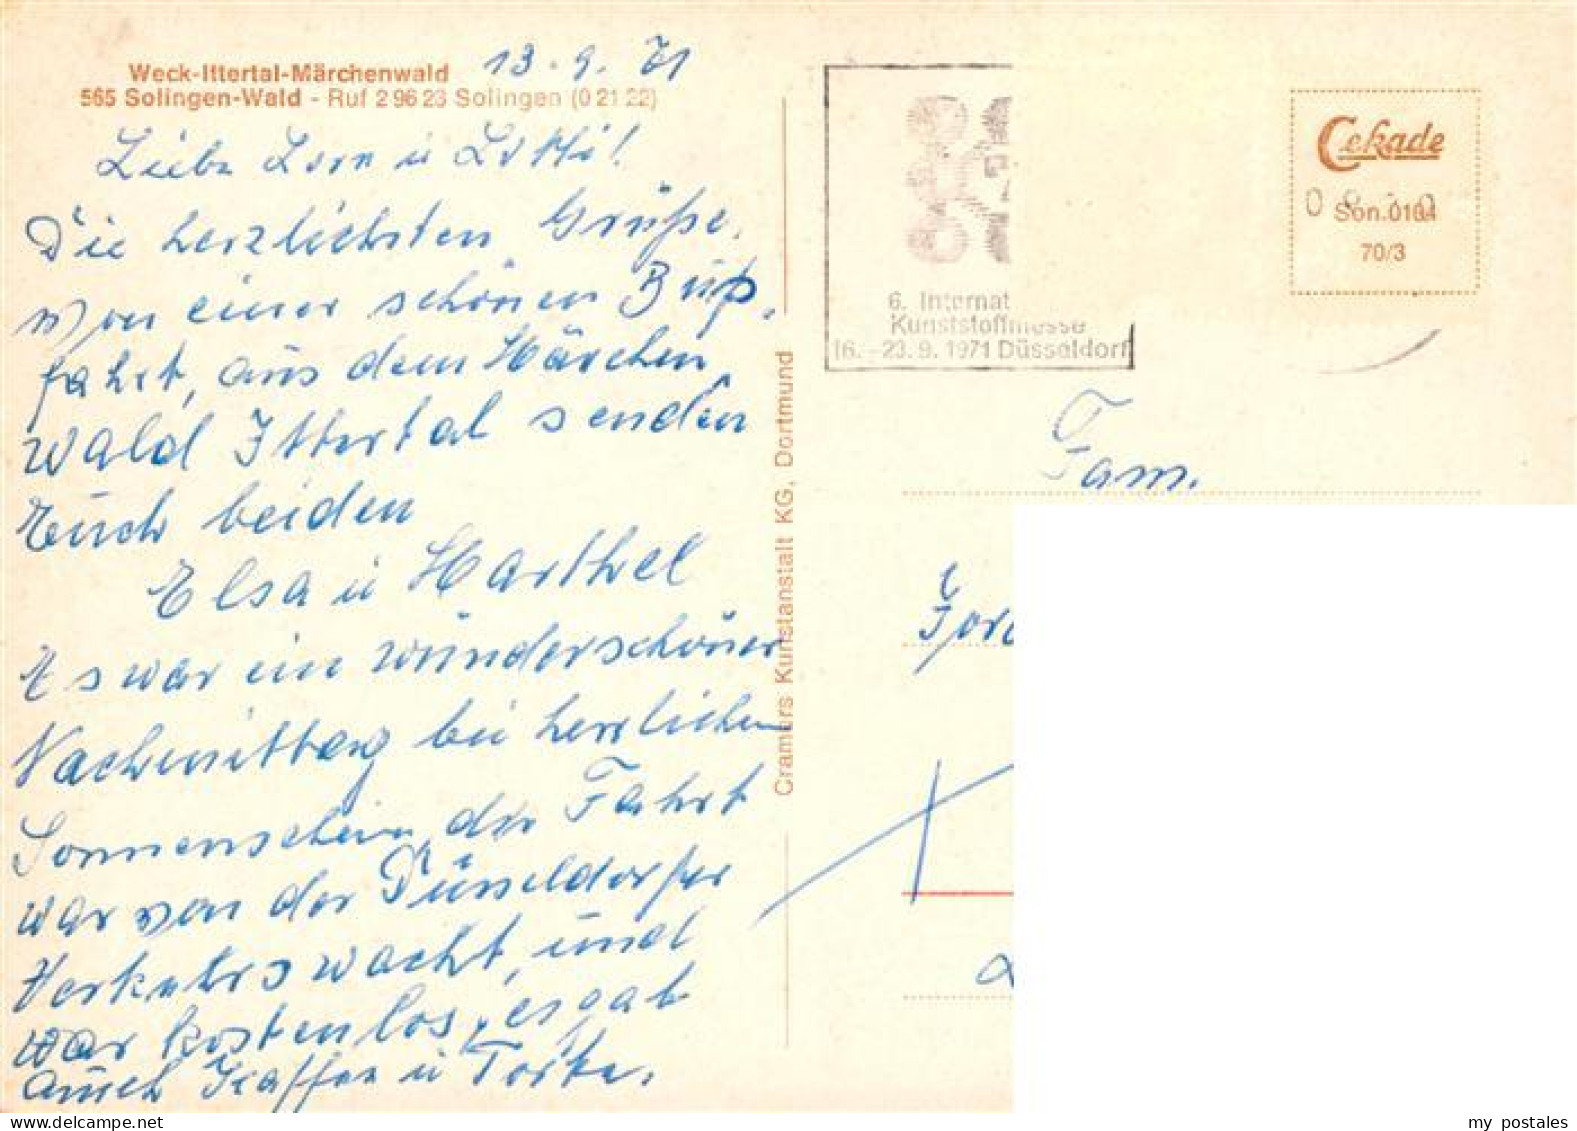 Weck-Ittertal-Märchenwald
565 Solingen-Wald - Ruf 2 96 23 Solingen (0 21 22)
13. 9. 71
Liebe Lore u Lotti!
Die herzlichsten Grüße,
von einer schönen Buß,
fahrt, aus dem Märchen
wald Ittertal senden
Euch beiden
Elsa u
Es war ein wunderschöner
Nachmittag bei herrlichen
Sonnenschein, die Fahrt
war von der Düsseldorfer
Verkehrswacht, und
war kostenlos, es gab
auch Kaffee u Torte.
Cramers Kunstanstalt KG, Dortmund
6. Internat
Kunststoffmesse
16.-23.9.1971 Düsseldorf
Cekade
Son.0104
70/3
Fam.
my postales